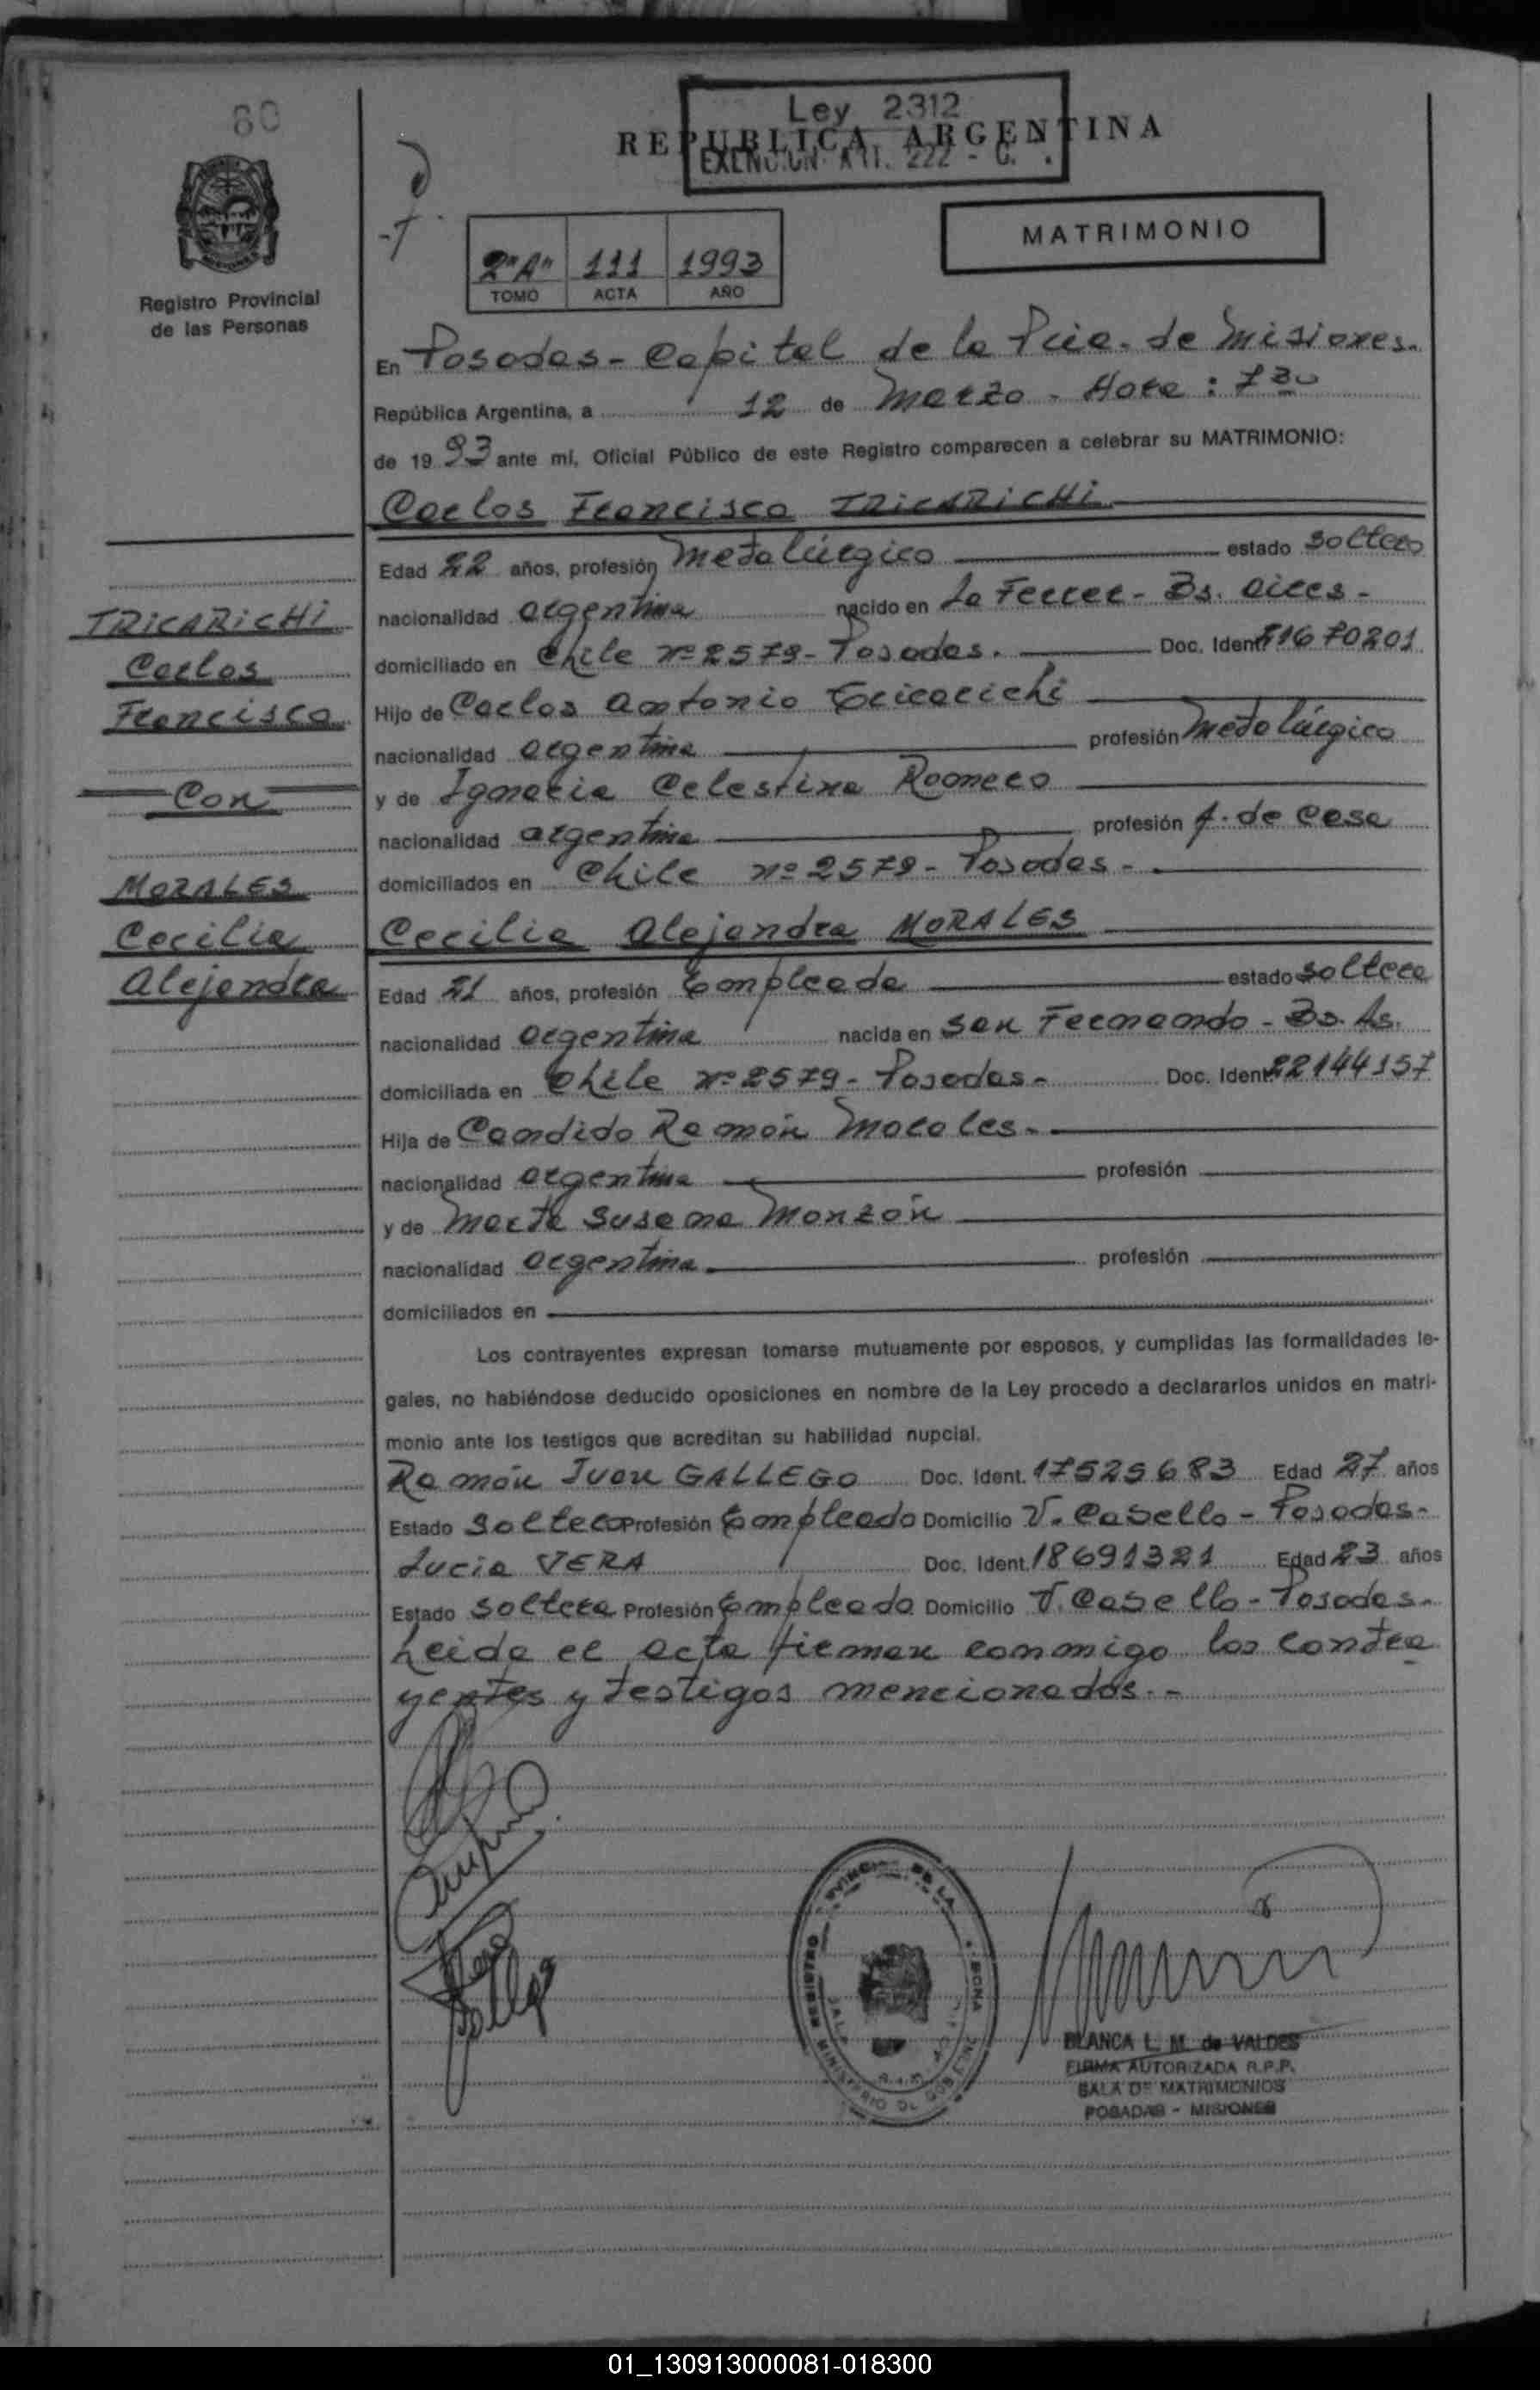 80
Ley 2312
REPUBLICA ARGENTINA
EXENCION Art. 222 - C. .
MATRIMONIO
2"A" 111 1993
TOMO ACTA AÑO
Registro Provincial
de las Personas
En Posadas - Capital de la Pcia. de Misiones.
República Argentina, a 12 de Marzo - Hora: 7 30
de 19 93 ante mí, Oficial Público de este Registro comparecen a celebrar su MATRIMONIO:
Carlos Francisco TRICARICHI
Edad 22 años, profesión Metalúrgico estado soltero
nacionalidad argentina nacido en La Ferrer - Bs. Aires -
domiciliado en Chile nº 2579 - Posadas. Doc. Ident. 21670201
Hijo de Carlos Antonio Tricarichi
nacionalidad argentina profesión Metalúrgico
y de Ignacia Celestina Romero
nacionalidad argentina profesión A. de casa
domiciliados en Chile nº 2579 - Posadas -
TRICARICHI
Carlos
Francisco
Con
MORALES
Cecilia
Alejandra
Cecilia Alejandra MORALES
Edad 21 años, profesión Empleada estado soltera
nacionalidad argentina nacida en San Fernando - Bs. As.
domiciliada en Chile nº 2579 - Posadas - Doc. Ident. 22144157
Hija de Candido Ramón Morales.
nacionalidad argentina profesión
y de Marta Susana Monzón
nacionalidad argentina profesión
domiciliados en
Los contrayentes expresan tomarse mutuamente por esposos, y cumplidas las formalidades le-
gales, no habiéndose deducido oposiciones en nombre de la Ley procedo a declararlos unidos en matri-
monio ante los testigos que acreditan su habilidad nupcial.
Ramón Juan GALLEGO Doc. Ident. 17525683 Edad 27 años
Estado soltero Profesión Empleado Domicilio V. Cabello - Posadas -
Lucia VERA Doc. Ident. 18691321 Edad 23 años
Estado soltera Profesión Empleada Domicilio V. Cabello - Posadas.
Leida el acta firman conmigo los contra
yentes y testigos mencionados. -
BLANCA L. M. de VALDES
FIRMA AUTORIZADA R.P.P.
SALA DE MATRIMONIOS
POSADAS - MISIONES
01_130913000081-018300